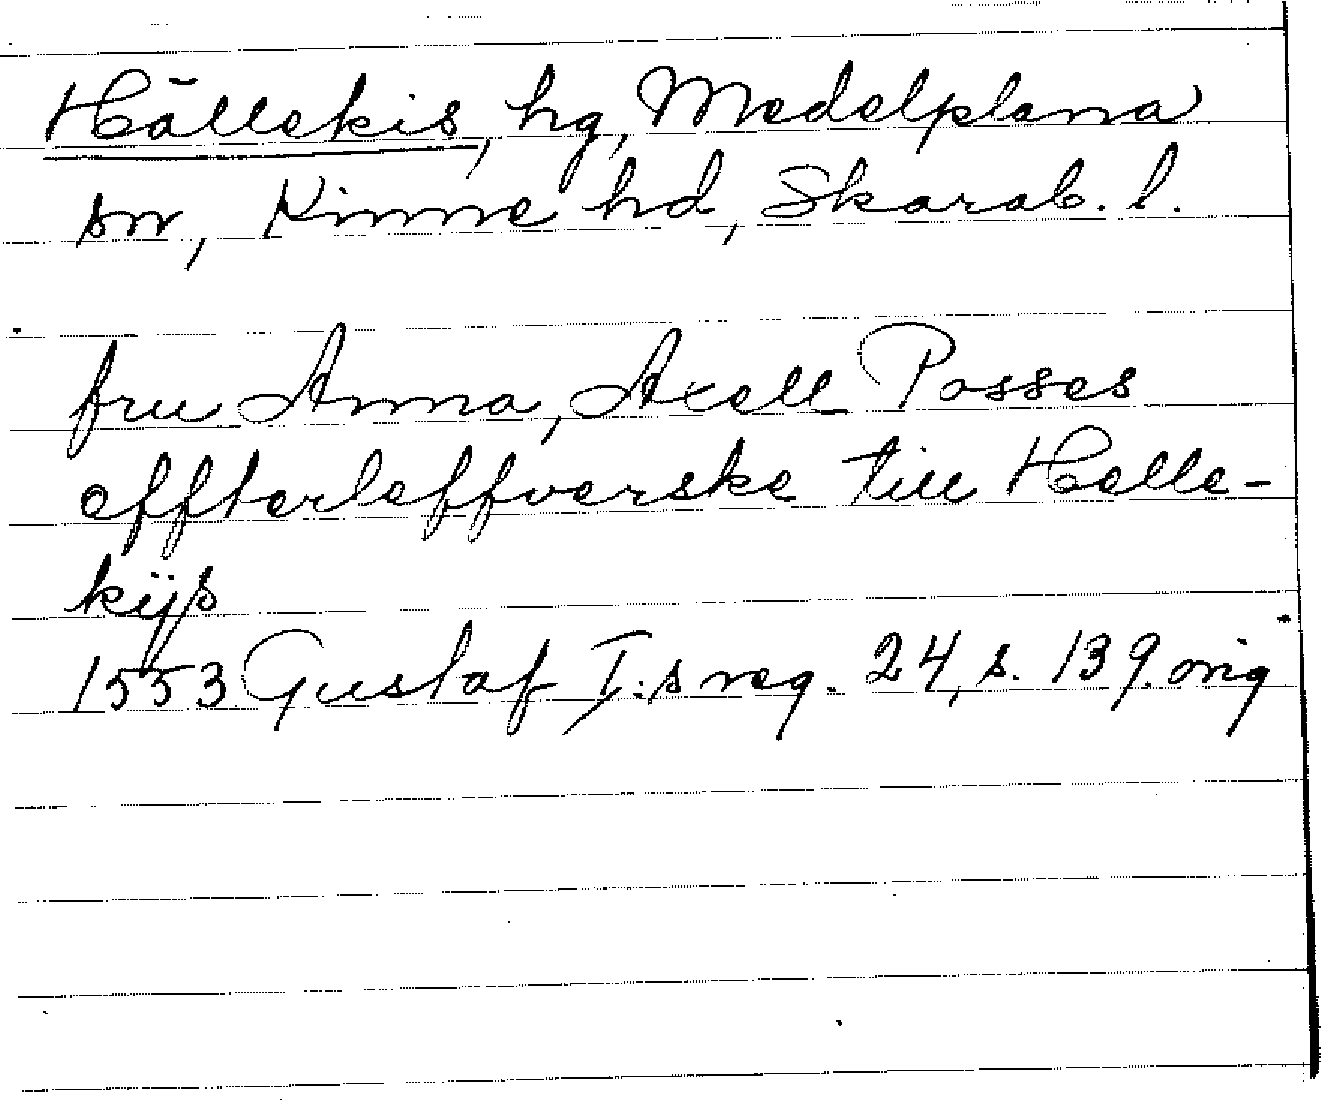 Hällekis, hg, Medelplana
sn, Kinne hd, Skarab. l.
fru Anna, Axell Posses
effterleffverske till Helle-
kijs
1553 Gustaf I:s reg. 24, s. 139. orig